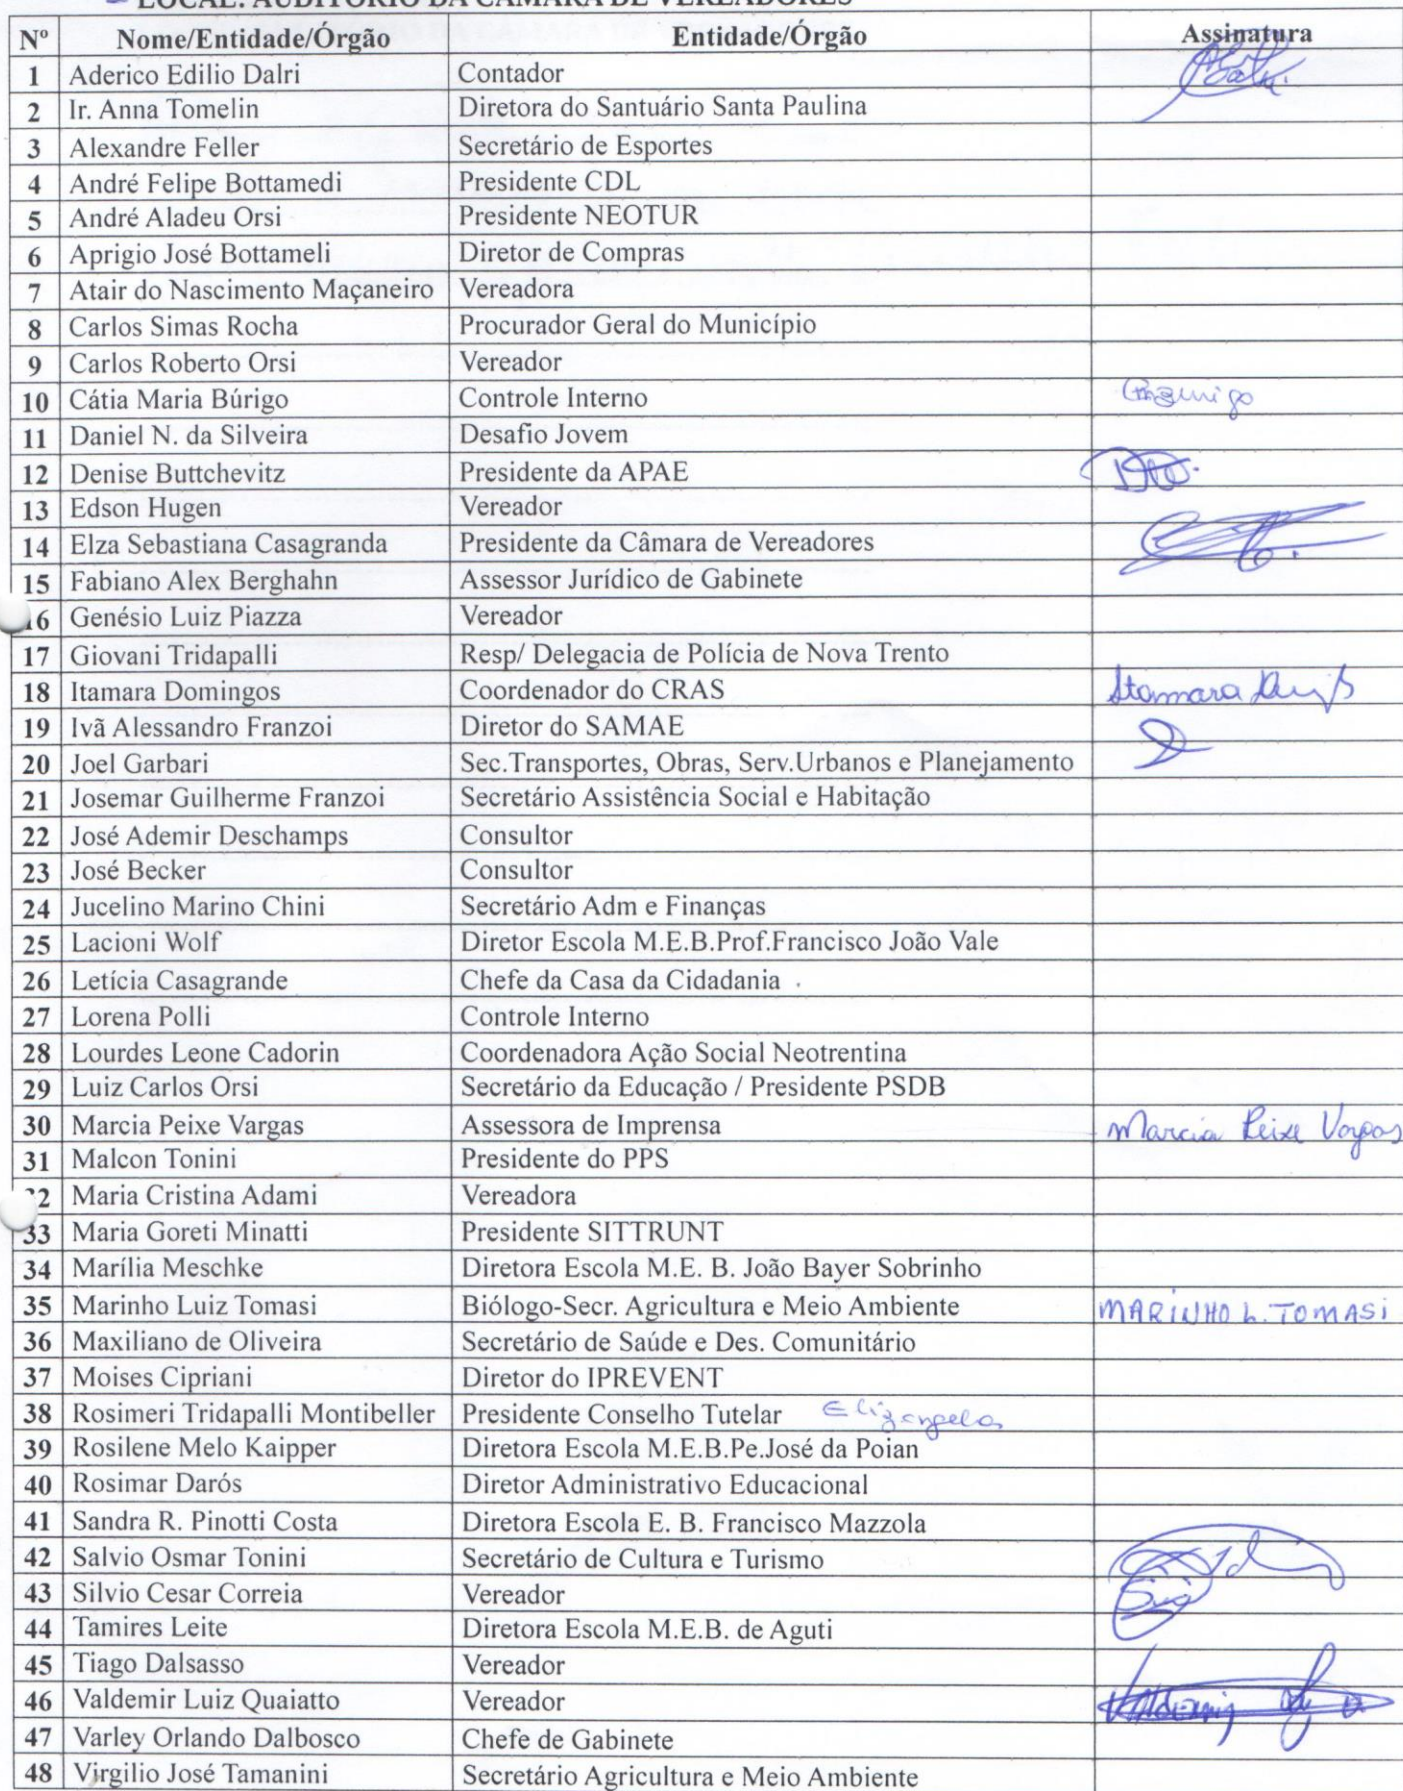 LOCAL: AUDITÓRIO DA CÂMARA DE VEREADORES
Nº Nome/Entidade/Órgão Entidade/Órgão Assinatura
1 Aderico Edilio Dalri Contador
2 Ir. Anna Tomelin Diretora do Santuário Santa Paulina
3 Alexandre Feller Secretário de Esportes
4 André Felipe Bottamedi Presidente CDL
5 André Aladeu Orsi Presidente NEOTUR
6 Aprigio José Bottameli Diretor de Compras
7 Atair do Nascimento Maçaneiro Vereadora
8 Carlos Simas Rocha Procurador Geral do Município
9 Carlos Roberto Orsi Vereador
10 Cátia Maria Búrigo Controle Interno
11 Daniel N. da Silveira Desafio Jovem
12 Denise Buttchevitz Presidente da APAE
13 Edson Hugen Vereador
14 Elza Sebastiana Casagranda Presidente da Câmara de Vereadores
15 Fabiano Alex Berghahn Assessor Jurídico de Gabinete
16 Genésio Luiz Piazza Vereador
17 Giovani Tridapalli Resp/ Delegacia de Polícia de Nova Trento
18 Itamara Domingos Coordenador do CRAS Itamara
19 Ivã Alessandro Franzoi Diretor do SAMAE
20 Joel Garbari Sec.Transportes, Obras, Serv.Urbanos e Planejamento
21 Josemar Guilherme Franzoi Secretário Assistência Social e Habitação
22 José Ademir Deschamps Consultor
23 José Becker Consultor
24 Jucelino Marino Chini Secretário Adm e Finanças
25 Lacioni Wolf Diretor Escola M.E.B.Prof.Francisco João Vale
26 Letícia Casagrande Chefe da Casa da Cidadania
27 Lorena Polli Controle Interno
28 Lourdes Leone Cadorin Coordenadora Ação Social Neotrentina
29 Luiz Carlos Orsi Secretário da Educação / Presidente PSDB
30 Marcia Peixe Vargas Assessora de Imprensa Marcia Peixe Vargas
31 Malcon Tonini Presidente do PPS
32 Maria Cristina Adami Vereadora
33 Maria Goreti Minatti Presidente SITTRUNT
34 Marília Meschke Diretora Escola M.E. B. João Bayer Sobrinho
35 Marinho Luiz Tomasi Biólogo-Secr. Agricultura e Meio Ambiente MARINHO L. TOMASI
36 Maxiliano de Oliveira Secretário de Saúde e Des. Comunitário
37 Moises Cipriani Diretor do IPREVENT
38 Rosimeri Tridapalli Montibeller Presidente Conselho Tutelar Elizangela
39 Rosilene Melo Kaipper Diretora Escola M.E.B.Pe.José da Poian
40 Rosimar Darós Diretor Administrativo Educacional
41 Sandra R. Pinotti Costa Diretora Escola E. B. Francisco Mazzola
42 Salvio Osmar Tonini Secretário de Cultura e Turismo
43 Silvio Cesar Correia Vereador
44 Tamires Leite Diretora Escola M.E.B. de Aguti
45 Tiago Dalsasso Vereador
46 Valdemir Luiz Quaiatto Vereador
47 Varley Orlando Dalbosco Chefe de Gabinete
48 Virgilio José Tamanini Secretário Agricultura e Meio Ambiente